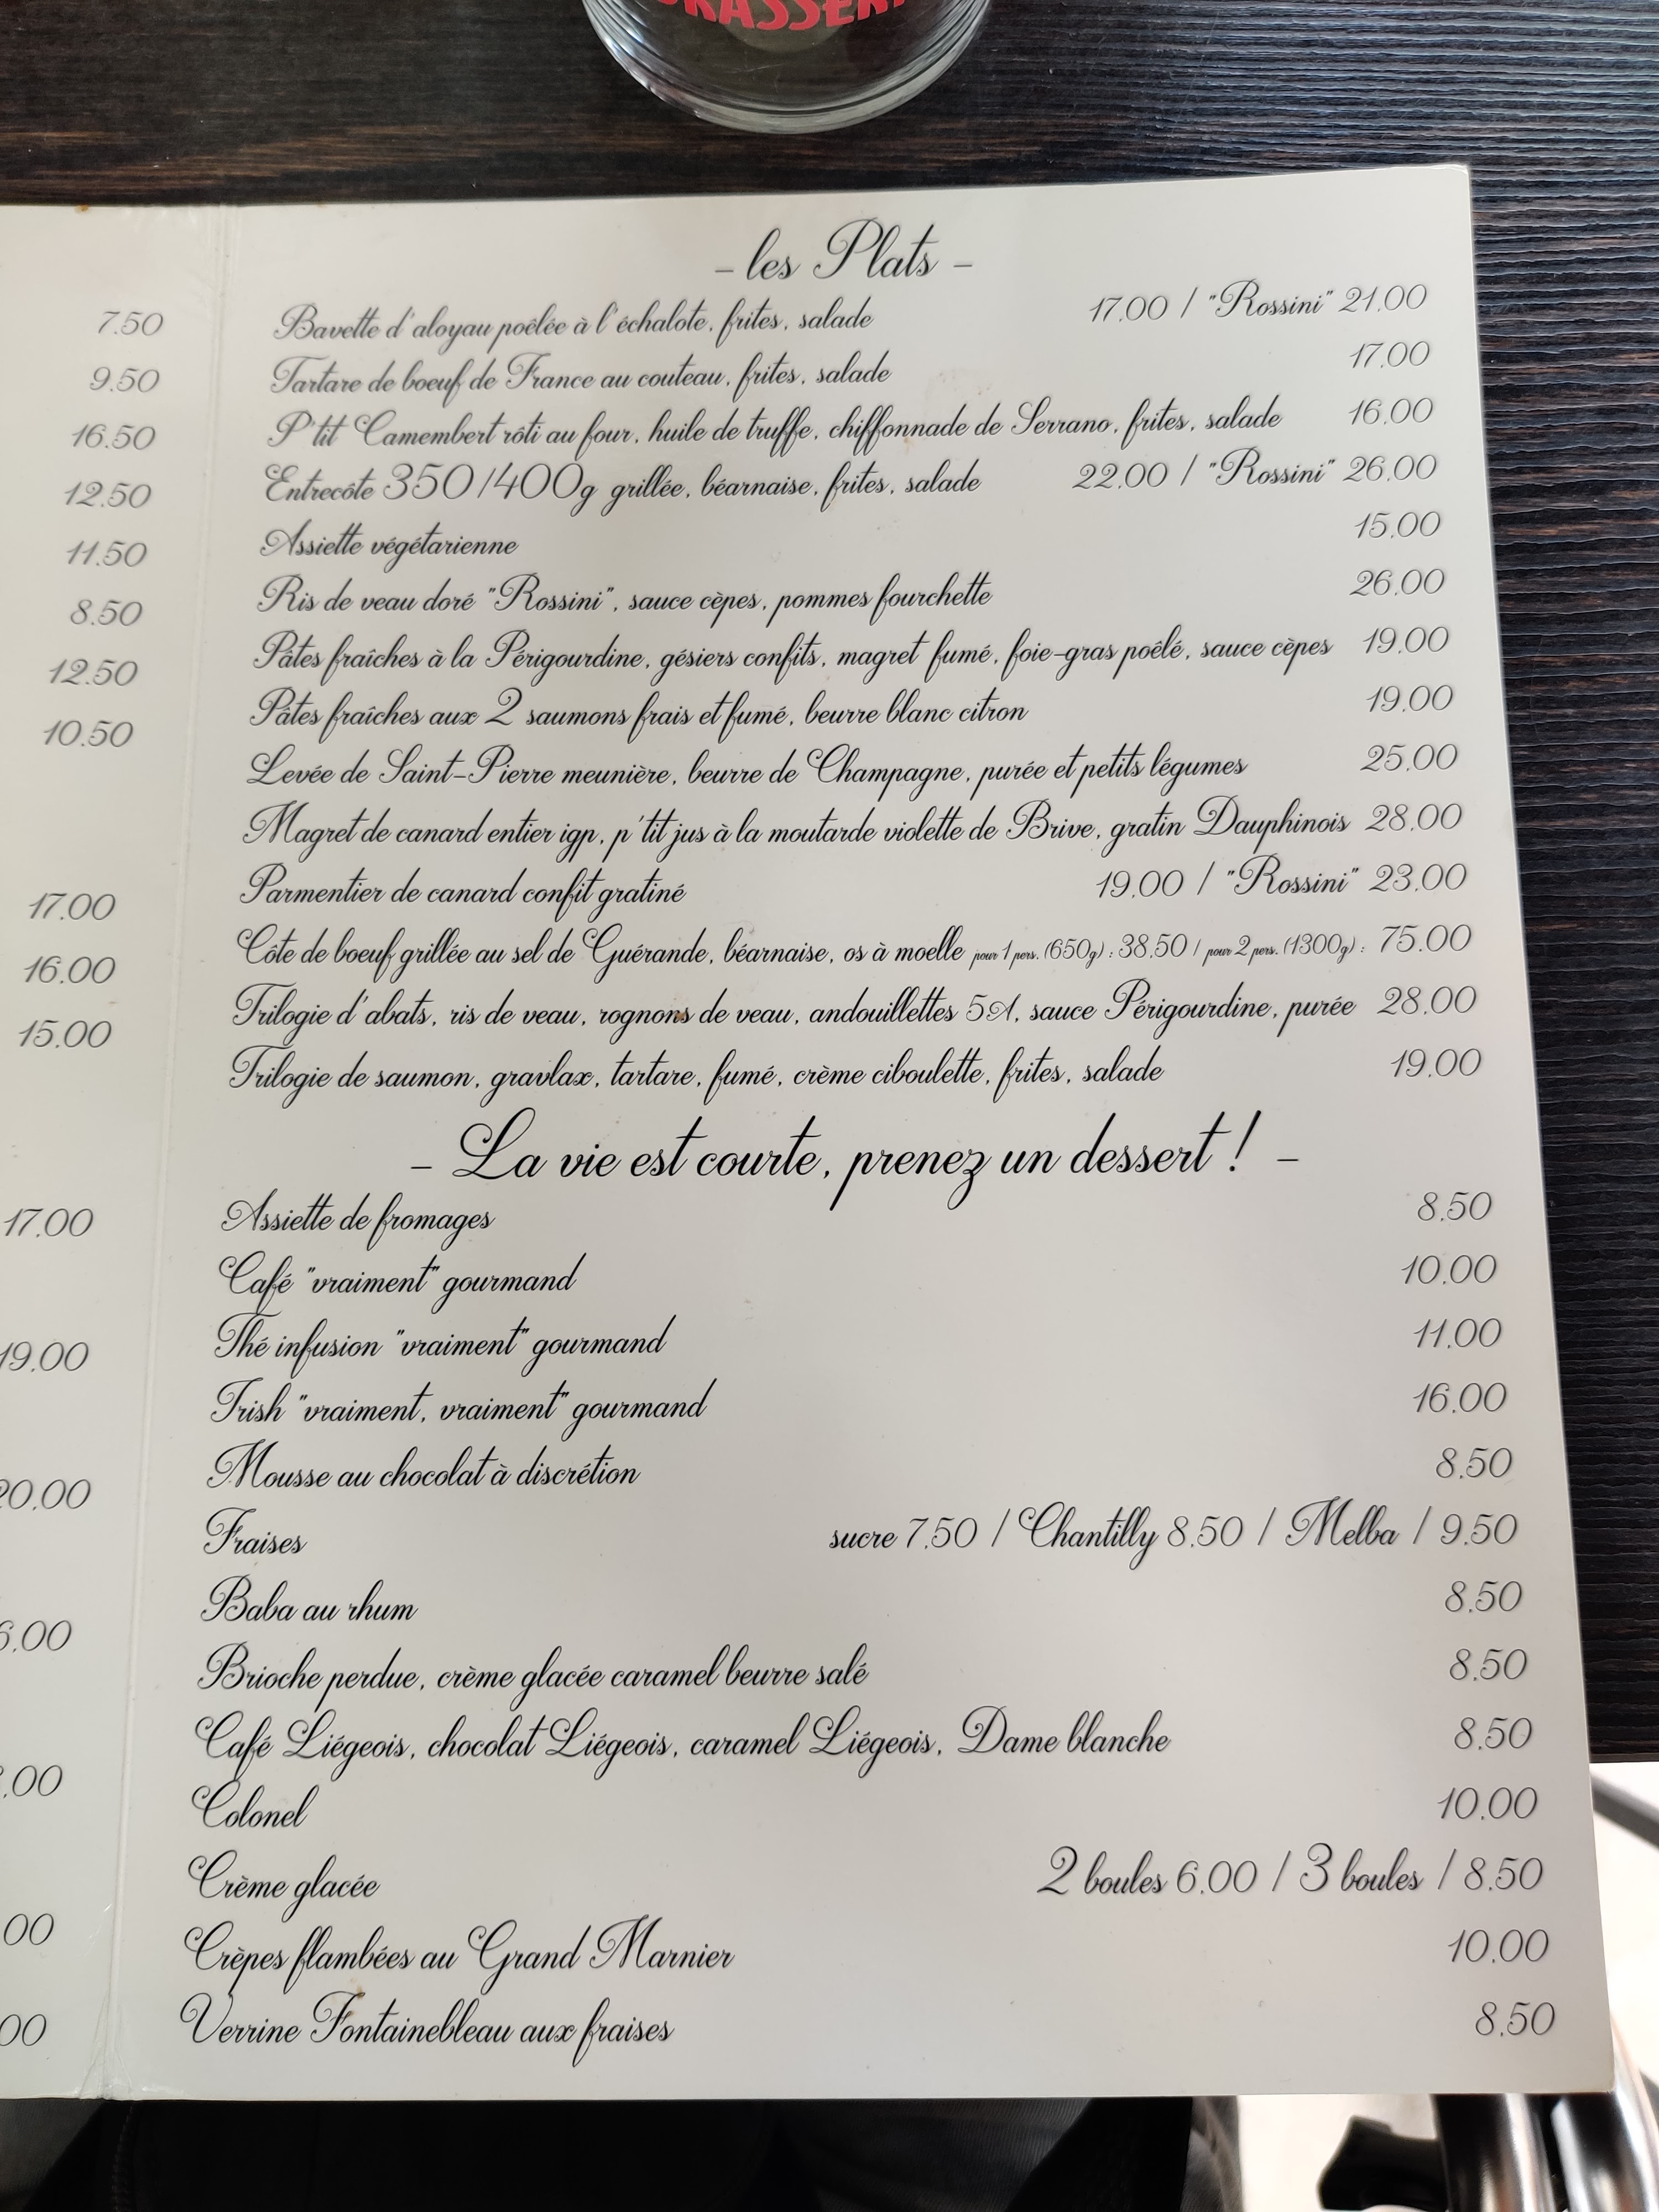 BRASSERI
- les Plats -
Bavette d'aloyau poêlée à l'échalote, frites, salade 17.00 / "Rossini" 21.00
Tartare de boeuf de France au couteau, frites, salade 17.00
P'tit Camembert rôti au four, huile de truffe, chiffonnade de Serrano, frites, salade 16.00
Entrecôte 350/400g grillée, béarnaise, frites, salade 22.00 / "Rossini" 26.00
Assiette végétarienne 15.00
Ris de veau doré "Rossini", sauce cèpes, pommes fourchette 26.00
Pâtes fraîches à la Périgourdine, gésiers confits, magret fumé, foie-gras poêlé, sauce cèpes 19.00
Pâtes fraîches aux 2 saumons frais et fumé, beurre blanc citron 19.00
Levée de Saint-Pierre meunière, beurre de Champagne, purée et petits légumes 25.00
Magret de canard entier igp, p'tit jus à la moutarde violette de Brive, gratin Dauphinois 28.00
Parmentier de canard confit gratiné 19.00 / "Rossini" 23.00
Côte de boeuf grillée au sel de Guérande, béarnaise, os à moelle pour 1 pers. (650g) : 38.50 / pour 2 pers. (1300g) : 75.00
Trilogie d'abats, ris de veau, rognons de veau, andouillettes 5A, sauce Périgourdine, purée 28.00
Trilogie de saumon, gravlax, tartare, fumé, crème ciboulette, frites, salade 19.00
- La vie est courte, prenez un dessert ! -
Assiette de fromages 8.50
Café "vraiment" gourmand 10.00
Thé infusion "vraiment" gourmand 11.00
Irish "vraiment, vraiment" gourmand 16.00
Mousse au chocolat à discrétion 8.50
Fraises sucre 7.50 / Chantilly 8.50 / Melba / 9.50
Baba au rhum 8.50
Brioche perdue, crème glacée caramel beurre salé 8.50
Café Liégeois, chocolat Liégeois, caramel Liégeois, Dame blanche 8.50
Colonel 10.00
Crème glacée 2 boules 6.00 / 3 boules / 8.50
Crêpes flambées au Grand Marnier 10.00
Verrine Fontainebleau aux fraises 8.50
7.50
9.50
16.50
12.50
11.50
8.50
12.50
10.50
17.00
16.00
15.00
17.00
19.00
20.00
6.00
.00
00
00